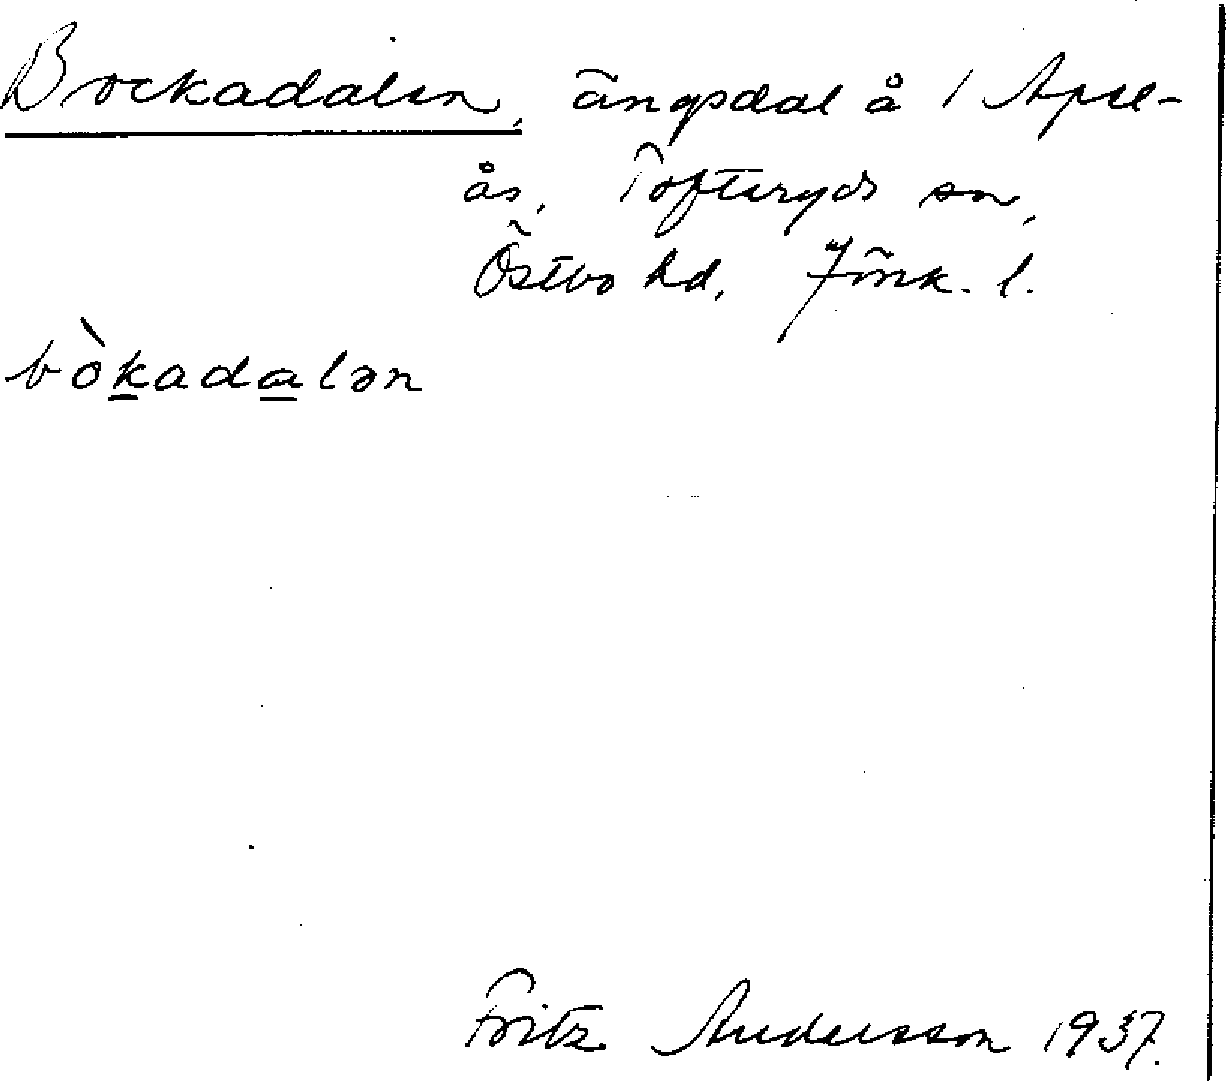 Bockadalen, ängsdal å 1 Apel-
ås, Tofteryds sn,
Östbo hd, Jönk. l.
bòkadalən
Fritz Andersson 1937.